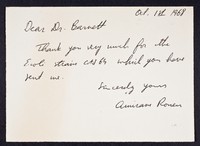 Oct. 1st 1968
Dear Dr. Barnett
Thank you very much for the
E. coli strain which you have
sent me.
Sincerely yours
Amiram Ronen